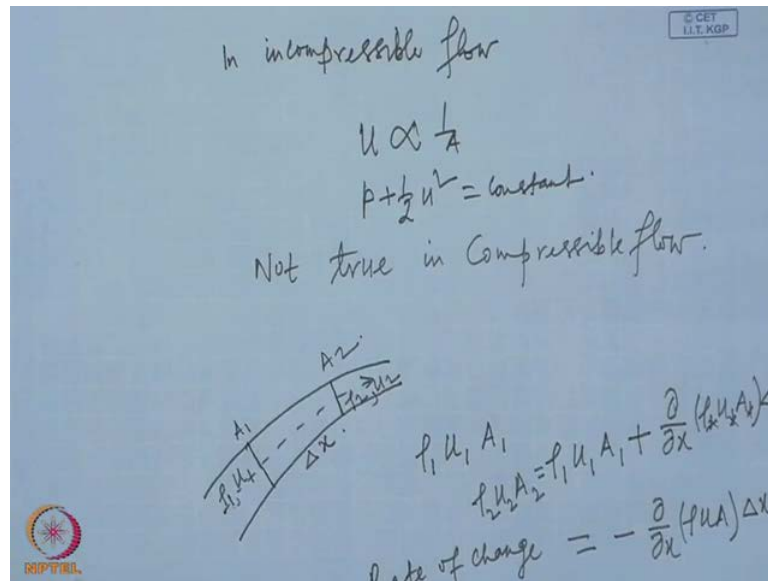 © CET
I.I.T. KGP
In incompressible flow
u ∝ 1/A
p + 1/2 u² = constant.
Not true in Compressible flow.
A1
A2
ρ1, u1
ρ2, u2
Δx.
ρ1 u1 A1
ρ2 u2 A2 = ρ1 u1 A1 + ∂/∂x (ρ* u* A*) Δ
Rate of change = - ∂/∂x (ρuA) Δx
NPTEL